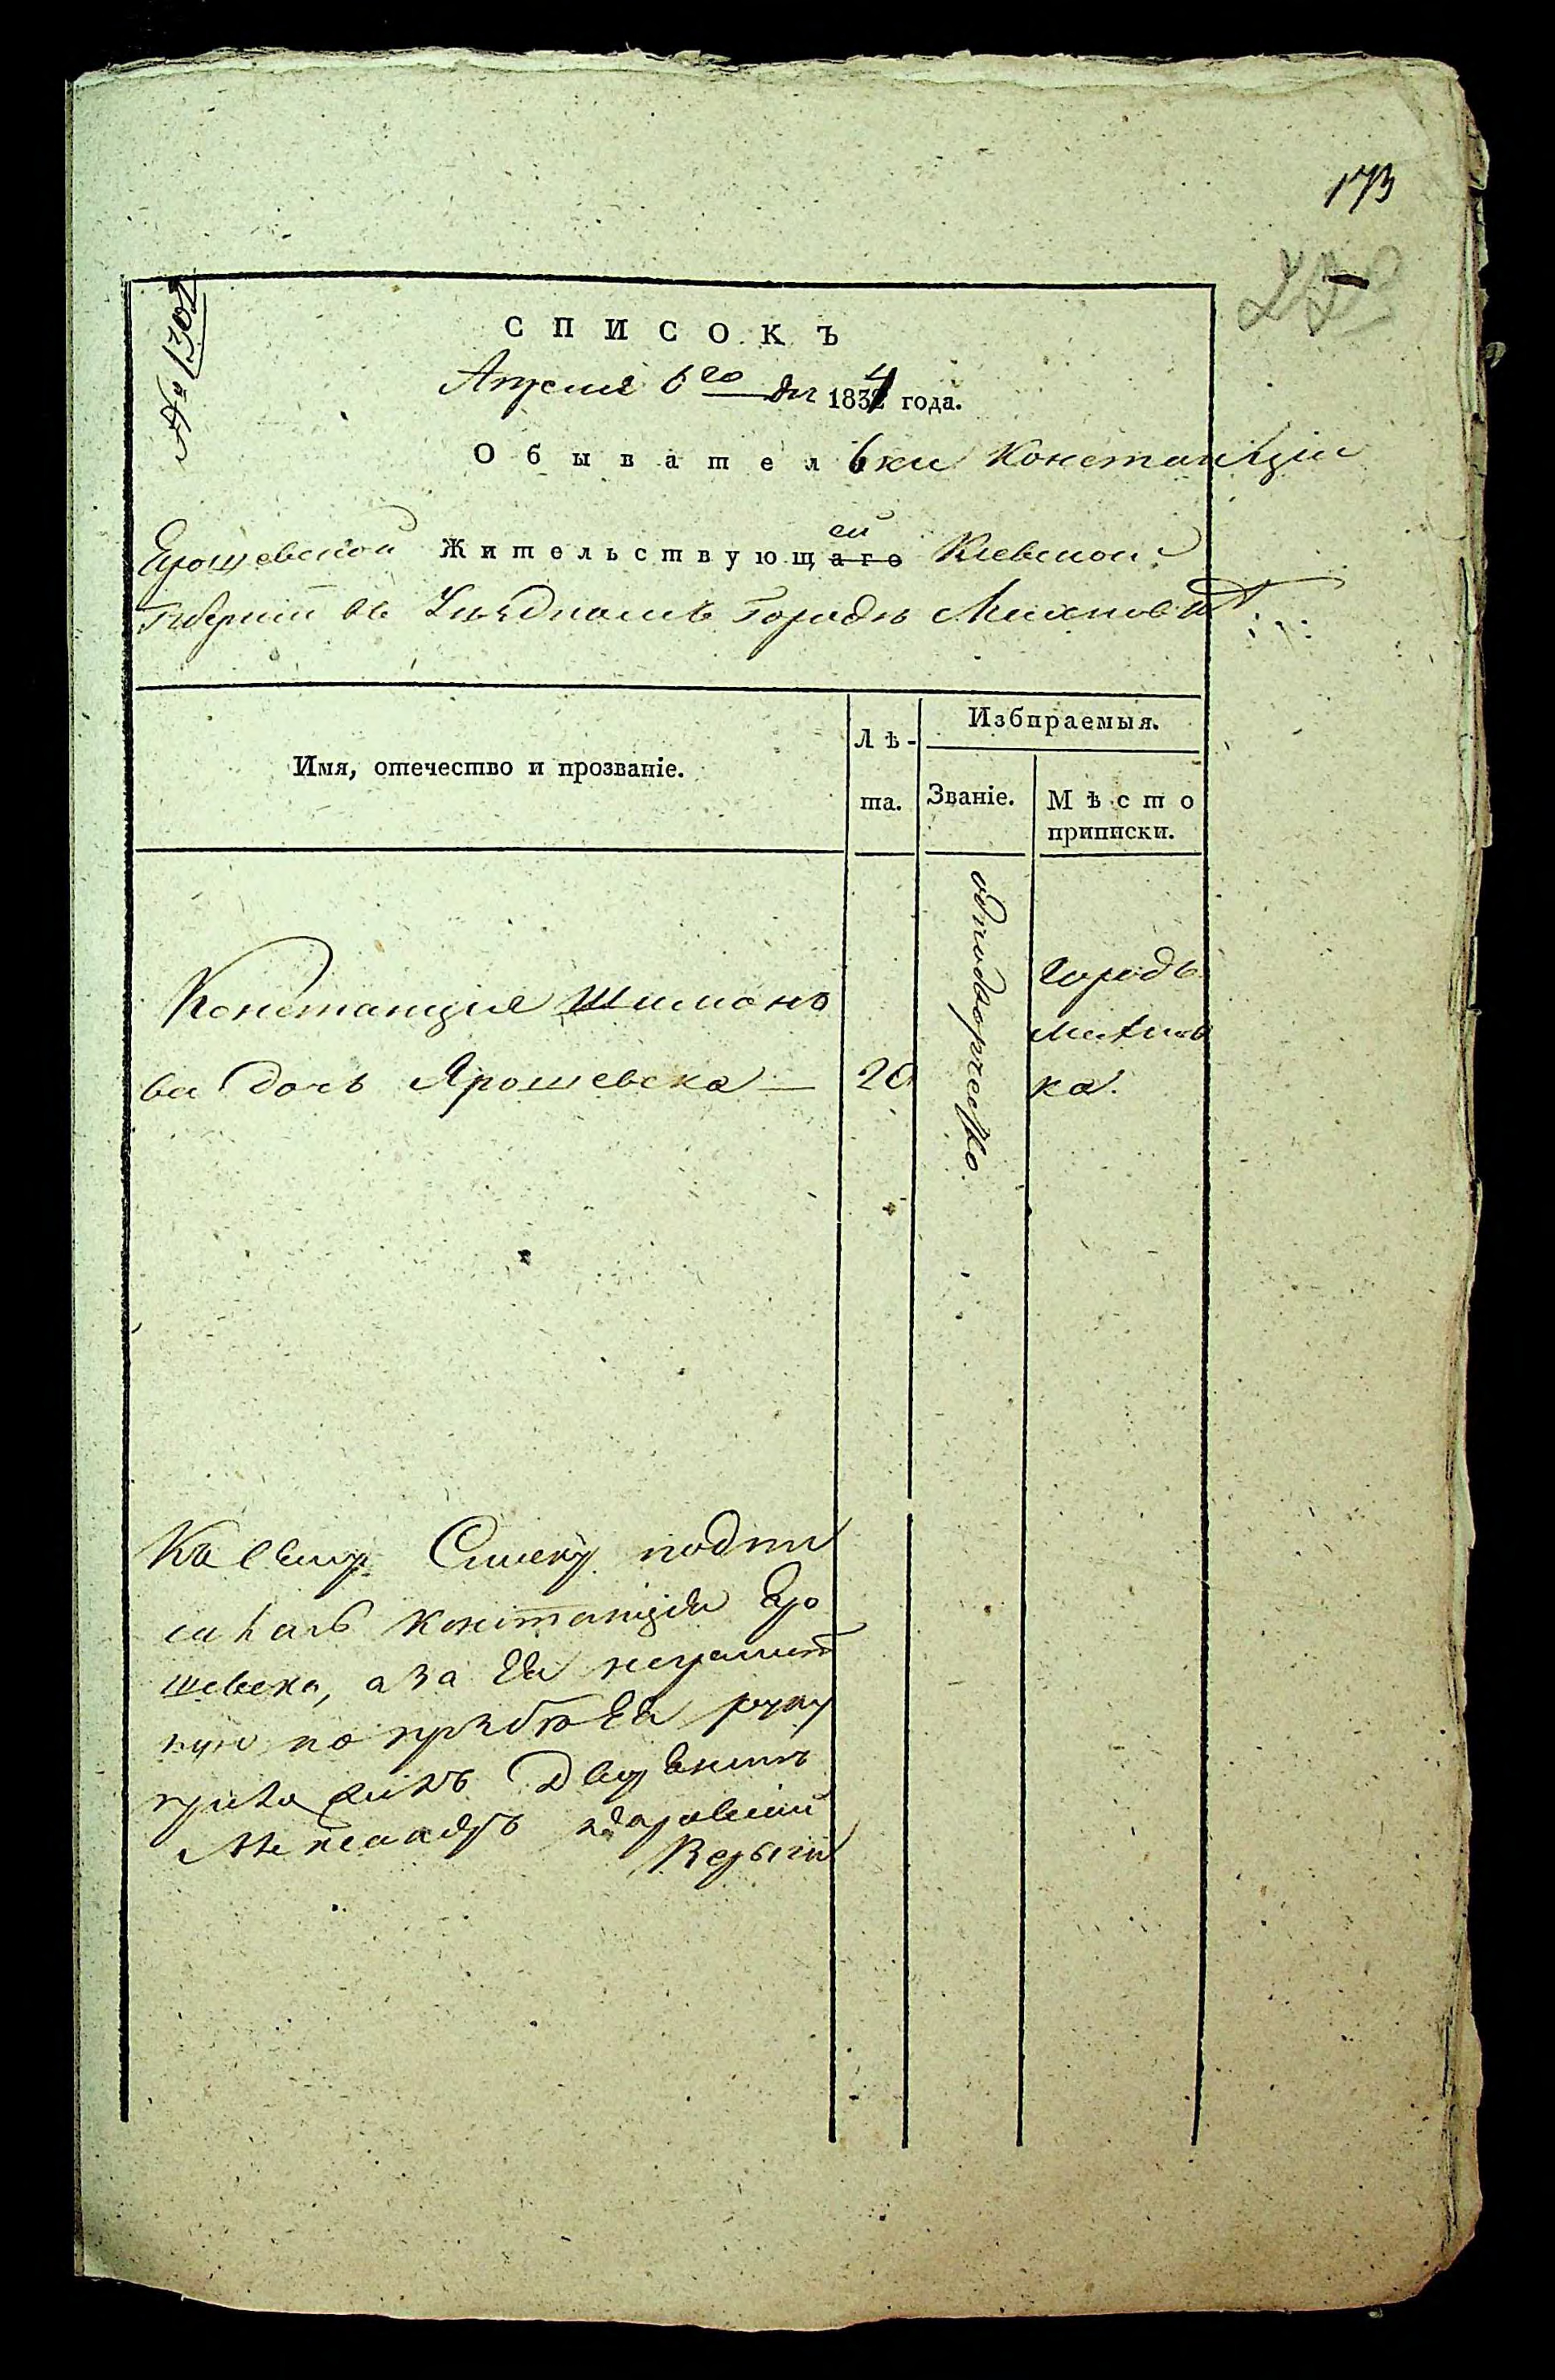 173
№ 1301
СПИСОКЪ
Апреля 6го дня 1834 года.
Обывательки Констанціи
Ярошевской Жительствующей Кіевской
Губерніи въ Уѣздномъ Городѣ Махновкѣ
Имя, отечество и прозваніе.
Лѣ-
та.
Избираемыя.
Званіе.
Мѣсто
приписки.
Констанція Шимоно
ва дочь Ярошевска — 20
однодворческо
Городъ
Махнов
ка.
Къ сему Списку подпи
салась Констанція Яро
шевска, а за Ея неграмот
ную по прозбѣ Ея руку
приложилъ Дворянинъ
Александръ